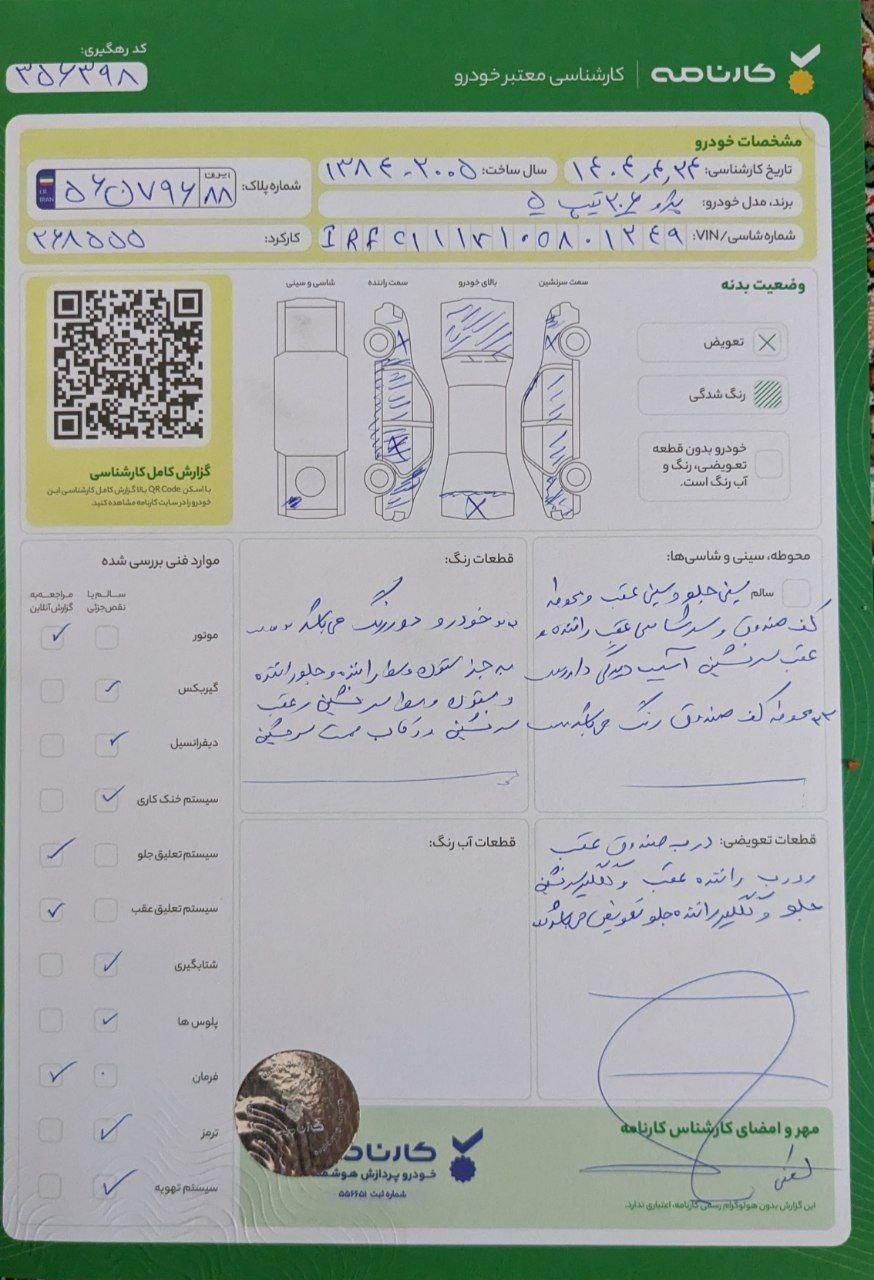 کارنامه | کارشناسی معتبر خودرو
کد رهگیری:
۳۵۶۳۹۸
مشخصات خودرو
تاریخ کارشناسی: ۱۴۰۴,۴,۲۴
سال ساخت: ۱۳۸۴-۲۰۰۵
شماره پلاک: ۵۶ ن ۷۹۶ ایران ۸۸
I.R. IRAN
برند، مدل خودرو: پژو ۲۰۶ تیپ ۵
شماره شاسی/VIN:
کارکرد: ۲۶۸۵۵۵
وضعیت بدنه
سمت سرنشین
بالای خودرو
سمت راننده
شاسی و سینی
تعویض
رنگ شدگی
خودرو بدون قطعه
تعویضی، رنگ و
آب رنگ است.
گزارش کامل کارشناسی
با اسکن QR Code بالا گزارش کامل کارشناسی این
خودرو را در سایت کارنامه مشاهده کنید.
محوطه، سینی و شاسی‌ها:
سالم
سینی جلو و سینی عقب و محوطه
کف صندوق و سر شاسی عقب راننده و
عقب سرنشین آسیب دیدگی دارند
محوطه کف صندوق رنگ می‌باشد
قطعات رنگ:
خودرو دور رنگ می‌باشد
به جز ستون وسط راننده و جلو راننده
و ستون وسط سرنشین و عقب
سرنشین و رکاب سمت سرنشین
قطعات تعویضی: درب صندوق عقب
و درب راننده عقب و گلگیر سرنشین
جلو و گلگیر راننده جلو تعویض می‌باشند
قطعات آب رنگ:
موارد فنی بررسی شده
سالم یا
نقص جزئی
مراجعه به
گزارش آنلاین
موتور
گیربکس
دیفرانسیل
سیستم خنک کاری
سیستم تعلیق جلو
سیستم تعلیق عقب
شتابگیری
پلوس ها
فرمان
ترمز
سیستم تهویه
مهر و امضای کارشناس کارنامه
این گزارش بدون هولوگرام رسمی کارنامه، اعتباری ندارد.
خودرو پردازش
شماره ثبت ۵۵۶۶۵۱